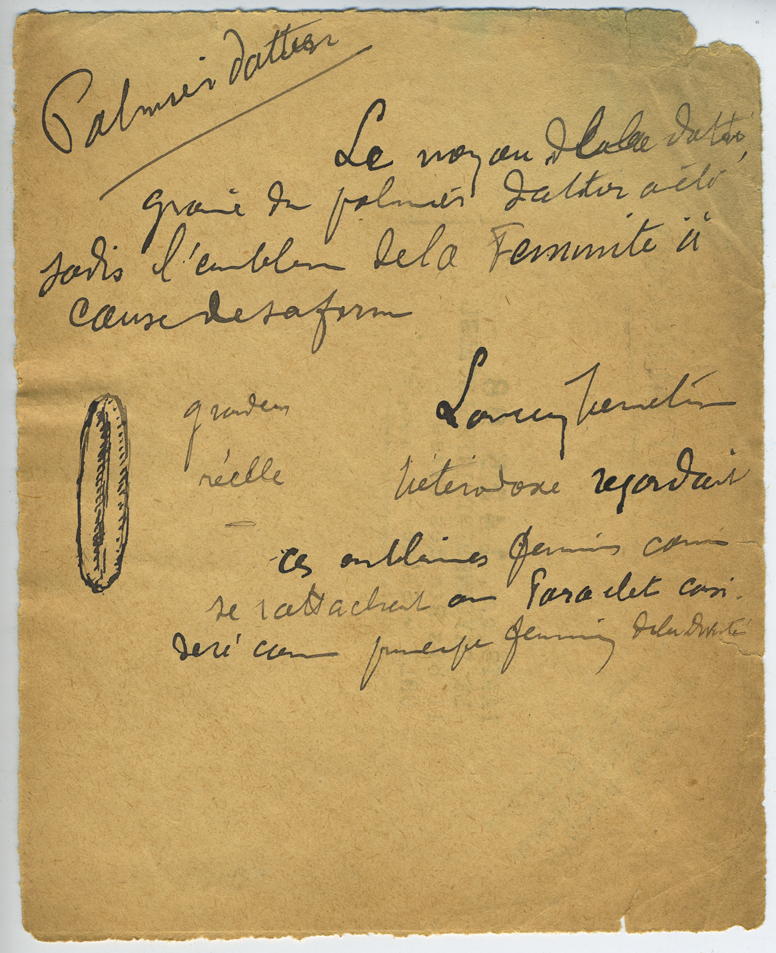 Palmier dattier
Le noyau de la datte
graine du palmier dattier a été
jadis l'emblem de la Feminité à
cause de sa form
grandeur
réelle
hétérodoxe regardait
ces emblèmes feminins comm
se rattachant au Paraclet consi.
deré comm principe feminin de la Divinité